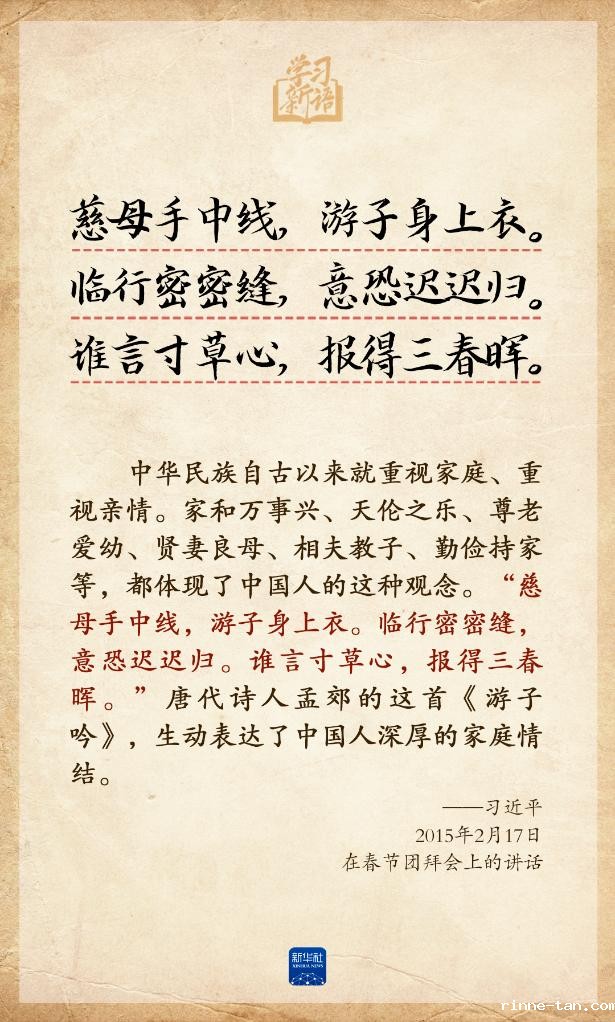 学习
新语
慈母手中线，游子身上衣。
临行密密缝，意恐迟迟归。
谁言寸草心，报得三春晖。
中华民族自古以来就重视家庭、重
视亲情。家和万事兴、天伦之乐、尊老
爱幼、贤妻良母、相夫教子、勤俭持家
等，都体现了中国人的这种观念。“慈
母手中线，游子身上衣。临行密密缝，
意恐迟迟归。谁言寸草心，报得三春
晖。”唐代诗人孟郊的这首《游子
吟》，生动表达了中国人深厚的家庭情
结。
——习近平
2015年2月17日
在春节团拜会上的讲话
新华社
XINHUA NEWS
rinne-tan.com